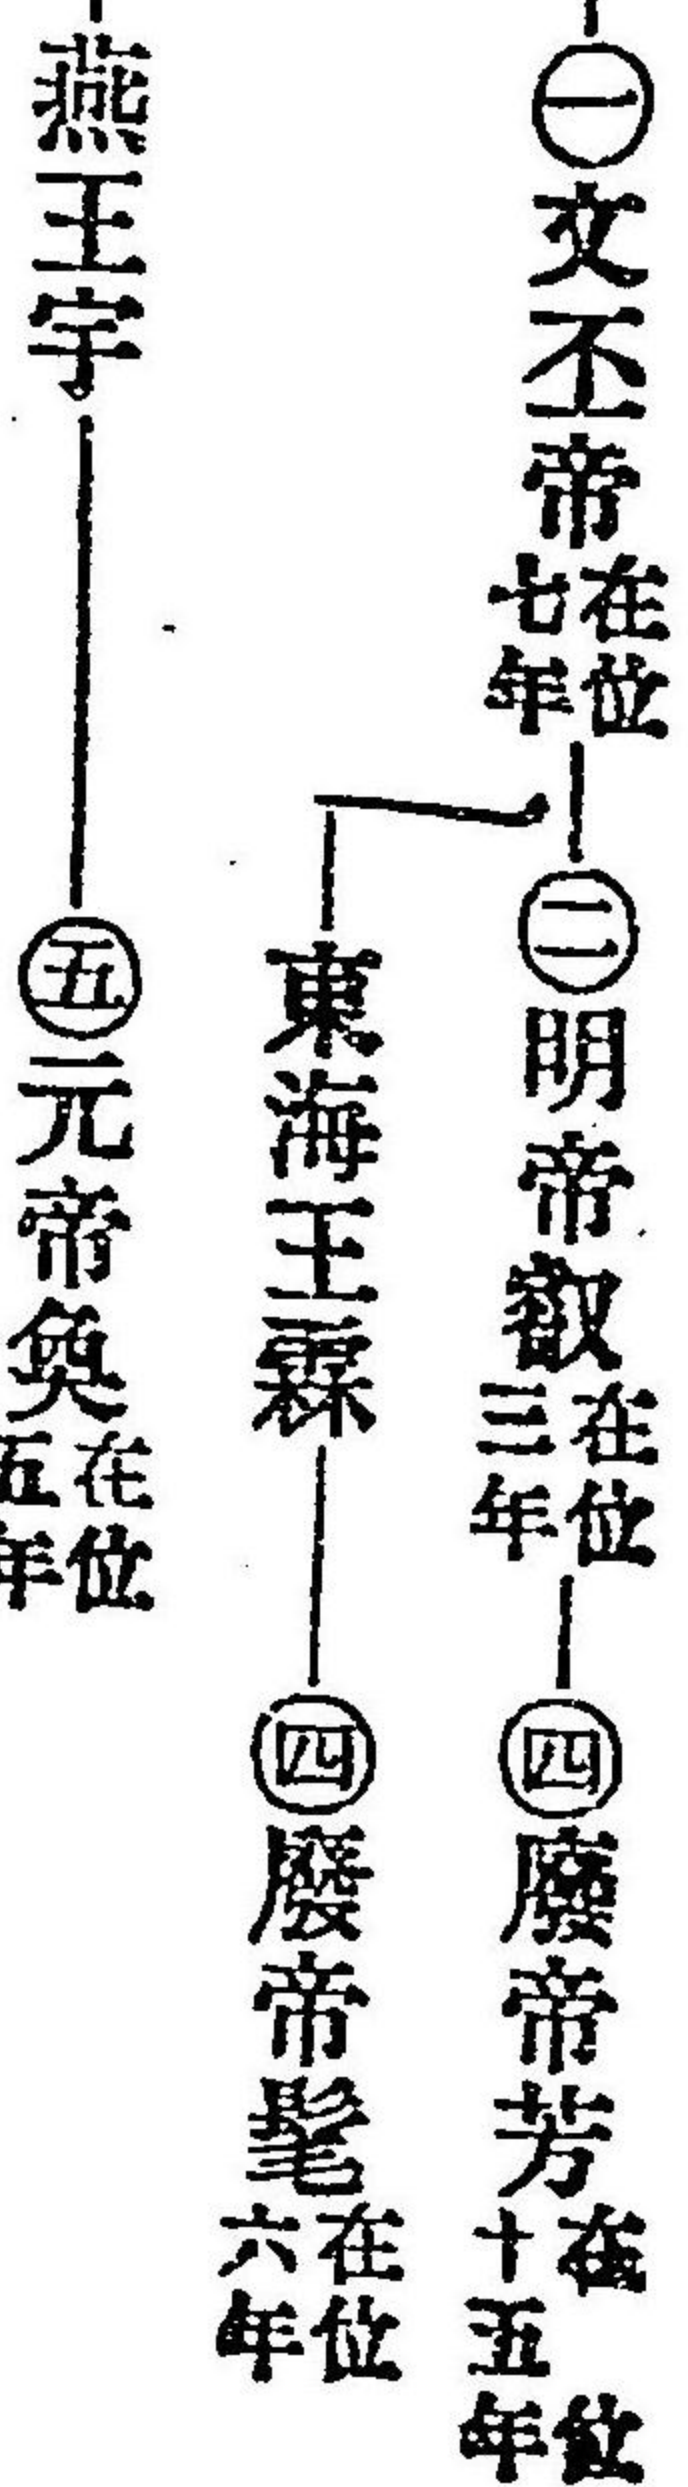 ㊀文丕帝在位七年
㊁明帝叡在位三年
㊃廢帝芳在位十五年
東海王霖
㊃廢帝髦在位六年
燕王宇
㊄元帝奐在位五年